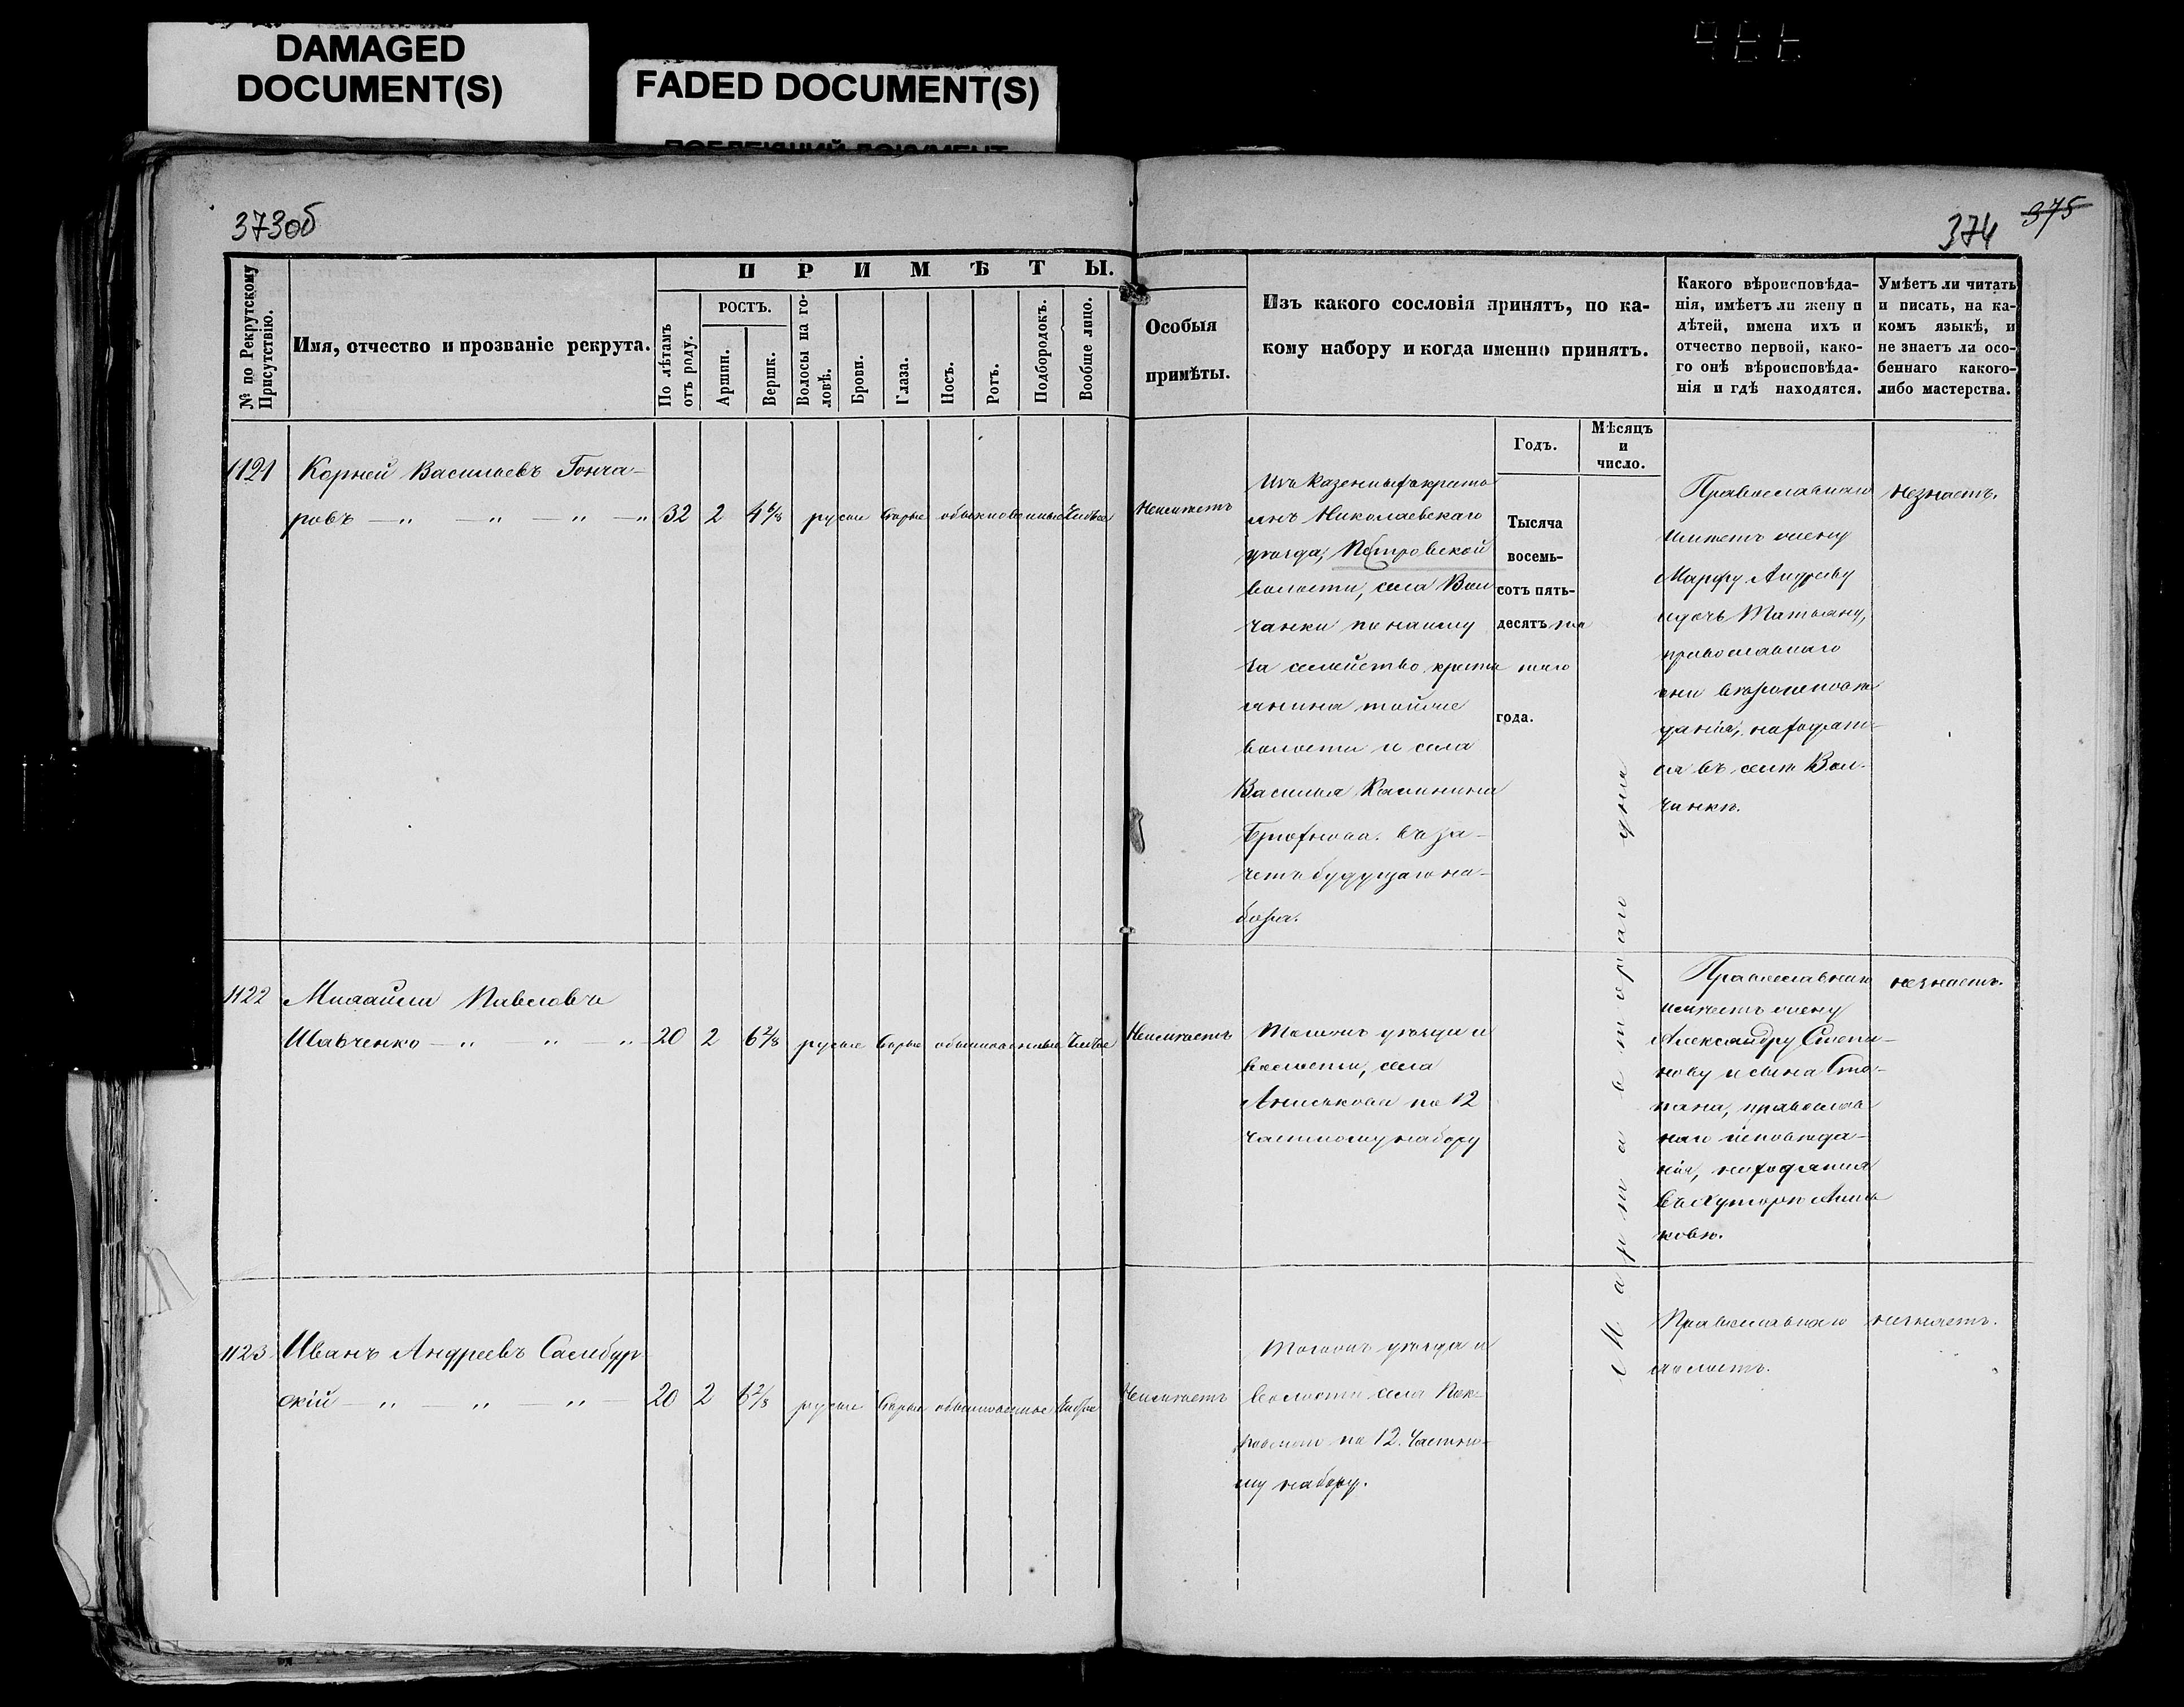 DAMAGED
DOCUMENT(S)
FADED DOCUMENT(S)
373об
374
375
№ по Рекрутскому Присутствію.
Имя, отчество и прозваніе рекрута.
ПРИМѢТЫ.
По лѣтамъ отъ роду.
РОСТЪ.
Аршин.
Вершк.
Волосы на головѣ.
Брови.
Глаза.
Носъ.
Ротъ.
Подбородокъ.
Вообще лицо.
Особыя
примѣты.
Изъ какого сословія принятъ, по ка-
кому набору и когда именно принятъ.
Годъ.
Мѣсяцъ
и
число.
Какого вѣроисповѣда-
нія, имѣетъ ли жену и
дѣтей, имена ихъ и
отчество первой, како-
го онѣ вѣроисповѣда-
нія и гдѣ находятся.
Умѣетъ ли читать
и писать, на ка-
комъ языкѣ, и
не знаетъ ли осо-
беннаго какого-
либо мастерства.
1121 Корней Васильевъ Гонча-
ровъ — „ — „ — „ — „ 32 2 4 6/8 русые сѣрые обыкновенные чистое
Неимѣетъ
Изъ казенныхъ крестья
янъ Николаевскаго
уѣзда, Петровской
волости, села Вол
чанки по найму
за семейство крестья
янина тойже
волости и села
Василья Калинина
въ за-
четъ будущаго на-
бора.
Тысяча
восемь-
сотъ пять-
десятъ пя
таго
года.
Марта втораго дня
Православнаго
имѣетъ жену
Марфу Андрееву
и дочь Татьяну,
православнаго
они вѣроисповѣ
данія, находят-
ся въ селѣ Вол-
чанкѣ.
незнаетъ.
1122 Михайла Павловъ
Шавченко — „ — „ — „ 20 2 6 2/8 русые сѣрые обыкновенные чистое
Неимѣетъ
Тогожъ уѣзда и
волости, села
по 12
частному набору
Православнаго
имѣетъ жену
Александру Степа-
нову и сына Сте-
пана, православ
наго исповѣда-
нія, находятся
въ хуторѣ
ковѣ.
незнаетъ.
1123 Иванъ Андреевъ Самбур
скій — „ — „ — „ — 20 2 6 2/8 русые сѣрые обыкновенные чистое
Неимѣетъ
Тогожъ уѣзда и
волости села Пок-
ровскаго по 12. частно-
му набору.
Православнаго
холостъ.
незнаетъ.